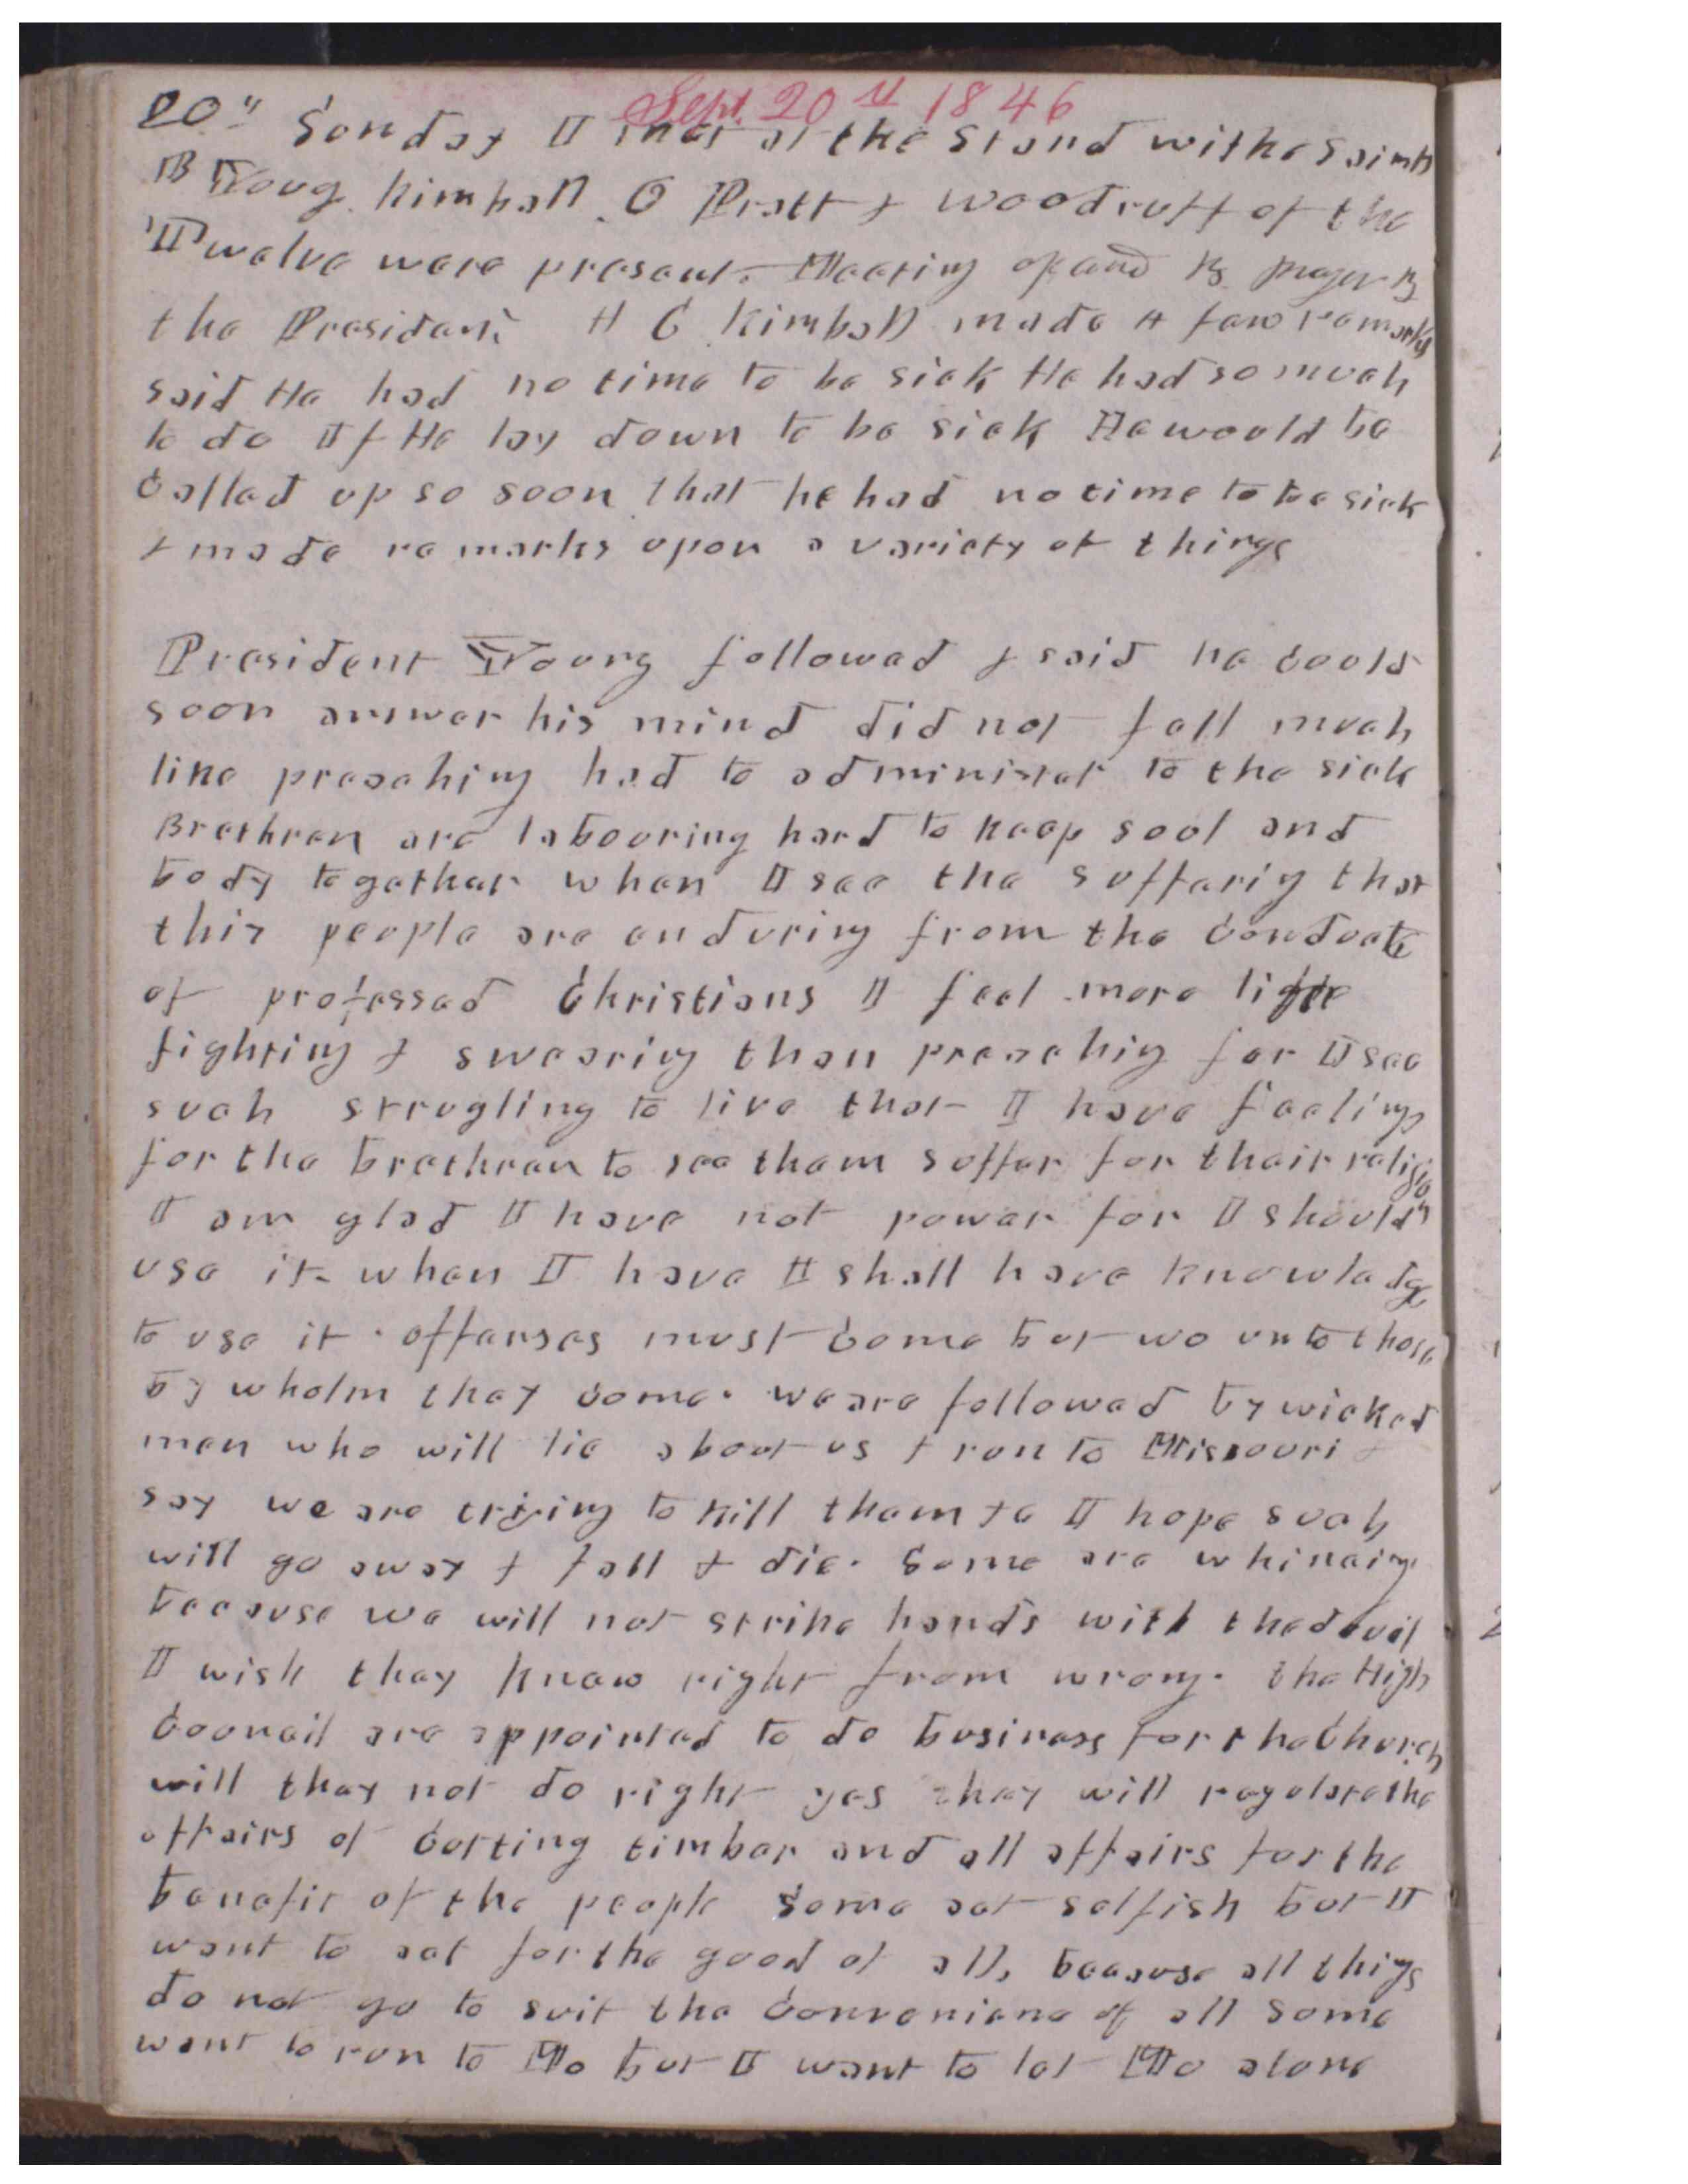 Sept. 20th 1846
20th Sunday I met at the Stand withe Saints
B Young Kimball O Pratt & Woodruff of the
Twelve were present. Meeting opand by prayer by
the President H C Kimball made a few remarks
said He had no time to be sick He had so much
to do If He lay down to be sick He would be
Called up so soon that he had no time to be sick
& made remarks upon a variety of things
President Young followed & said he could
soon answer his mind did not fell much
like preaching had to administer to the sick
Brethren are labouring hard to keep soul and
body together when I see the sufferig that
this people are enduring from the Conduct
of professed Christians I feel more like
fighting & swearing than preachig for I see
such strugling to live that I have feelings
for the brethren to see them suffer for their religion
I am glad I have not power for I should
use it when I have I shall have knowledge
to use it. offenses must come but wo unto those
by wholm they come. we are followed by wicked
men who will lie about us & run to Missouri &
say we are trying to kill them &c I hope such
will go away & fall & die. Some are whineing
because we will not strike hands with the devil
I wish they knew right from wrong. the High
Council are appointed to do business for the Church
will they not do right yes they will regulate the
affairs of Cutting timber and all affairs for the
benefit of the people some act selfish but I
want to act for the good of all, because all things
do not go to suit the Convenienc of all Some
want to run to Mo but I want to let Mo alone